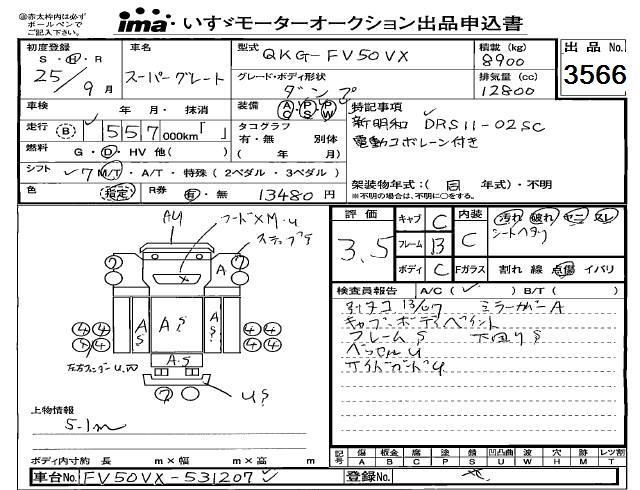 ※赤太枠内は必ず
ボールペンで
ご記入下さい。
ima いすゞモーターオークション出品申込書
初度登録 車名 型式 QKG-FV50VX 積載 (kg) 8900 出品 No. 3566
S・H・R 25/9月 スーパーグレート グレード・ボディ形状 ダンプ 排気量 (cc) 12800
車検 年 月・抹消 装備 AC PS PW 特記事項
新明和 DRS11-02SC
走行 (B) 557,000km「 」 タコグラフ
有・無 別体
( 年 月)
電動コボレーン付き
燃料 G・D・HV 他( )
シフト 7 M/T・A/T・特殊(2ペダル・3ペダル)
架装物年式:( 同 年式)・不明
※不明の場合は、不明に○をする。
色 指定 R券 有・無 13480円
評価 3.5 キャブ C 内装 C 汚れ 破れ ヤニ スレ
シートヘタリ
フレーム B
ボディ C Fガラス 割れ 線 点傷 イバリ
検査員報告 A/C( ✓ ) B/T( )
13/07 ミラーカバーA
キャブ・ボディペイント
フレームS 下回りS
ベッセルU
サイドガードU
AU フードXM・U
ステップS
A
7 7
AS AS AS
4 4 4 4
4 4 4 4
A・S
US
7
上物情報
5.1m
ボディ内寸約 長 m×幅 m×高 m
記号 傷 板金 腐 塗 錆 凹凸曲 波 穴 跡 レツ割
A B C P S U W H M T
車台No. FV50VX-531207 登録No.